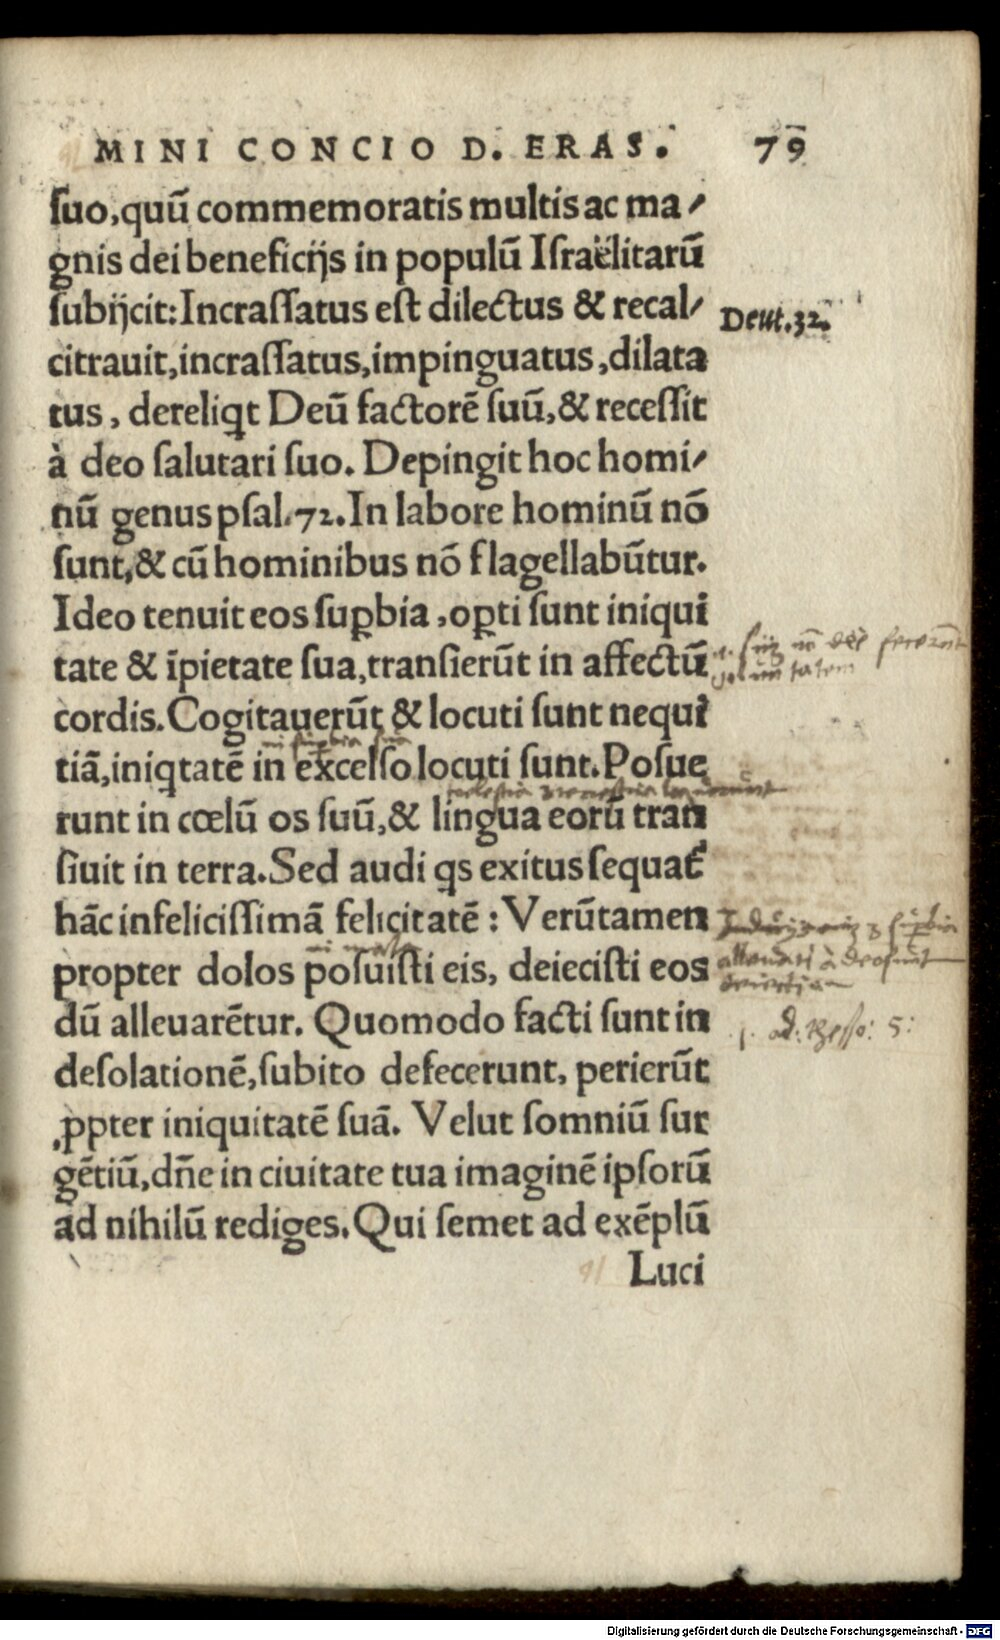 MINI CONCIO D. ERAS. 79
ſuo,quũ commemoratis multis ac ma⸗
gnis dei beneficijs in populũ Iſraëlitarũ
ſubijcit:Incraſſatus eſt dilectus & recal⸗
Deut.32.
citrauit,incraſſatus,impinguatus,dilata
tus, dereliꝗt Deũ factorẽ ſuũ,& receſſit
à deo ſalutari ſuo. Depingit hoc homi⸗
nũ genus pſal.72.In labore hominũ nõ
ſunt,& cũ hominibus nõ flagellabũtur.
Ideo tenuit eos ſuꝑbia,oꝑti ſunt iniqui
tate & ĩpietate ſua,tranſierũt in affectũ
cordis.Cogitauerũt & locuti ſunt nequi
tiã,iniꝗtatẽ in excelſo locuti ſunt.Poſue
runt in cœlũ os ſuũ,& lingua eorũ tran
ſiuit in terra.Sed audi ꝗs exitus ſequať
hãc infeliciſſimã felicitatẽ: Verũtamen
propter dolos poſuiſti eis, deieciſti eos
dũ alleuarẽtur. Quomodo facti ſunt in
deſolationẽ,ſubito defecerunt, perierũt
ꝓpter iniquitatẽ ſuã. Velut ſomniũ ſur
gẽtiũ,dñe in ciuitate tua imaginẽ ipſorũ
ad nihilũ rediges.Qui ſemet ad exẽplũ
Luci
Digitalisierung gefördert durch die Deutsche Forschungsgemeinschaft - DFG